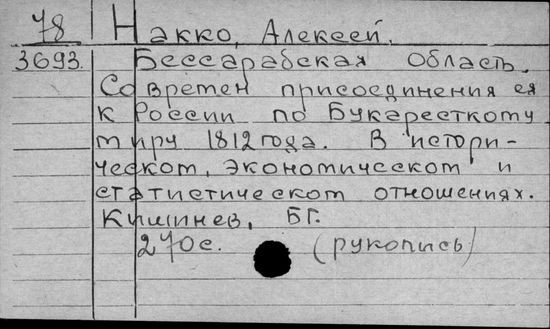 78 Накко, Алексей.
3693. Бессарабская область.
Со времен присоединения ея
к России по Букаресткому
миру 1812 года. В истори-
ческом, экономическом и
статистическом отношениях.
Кишинев, БГ.
270 с. (рукопись)